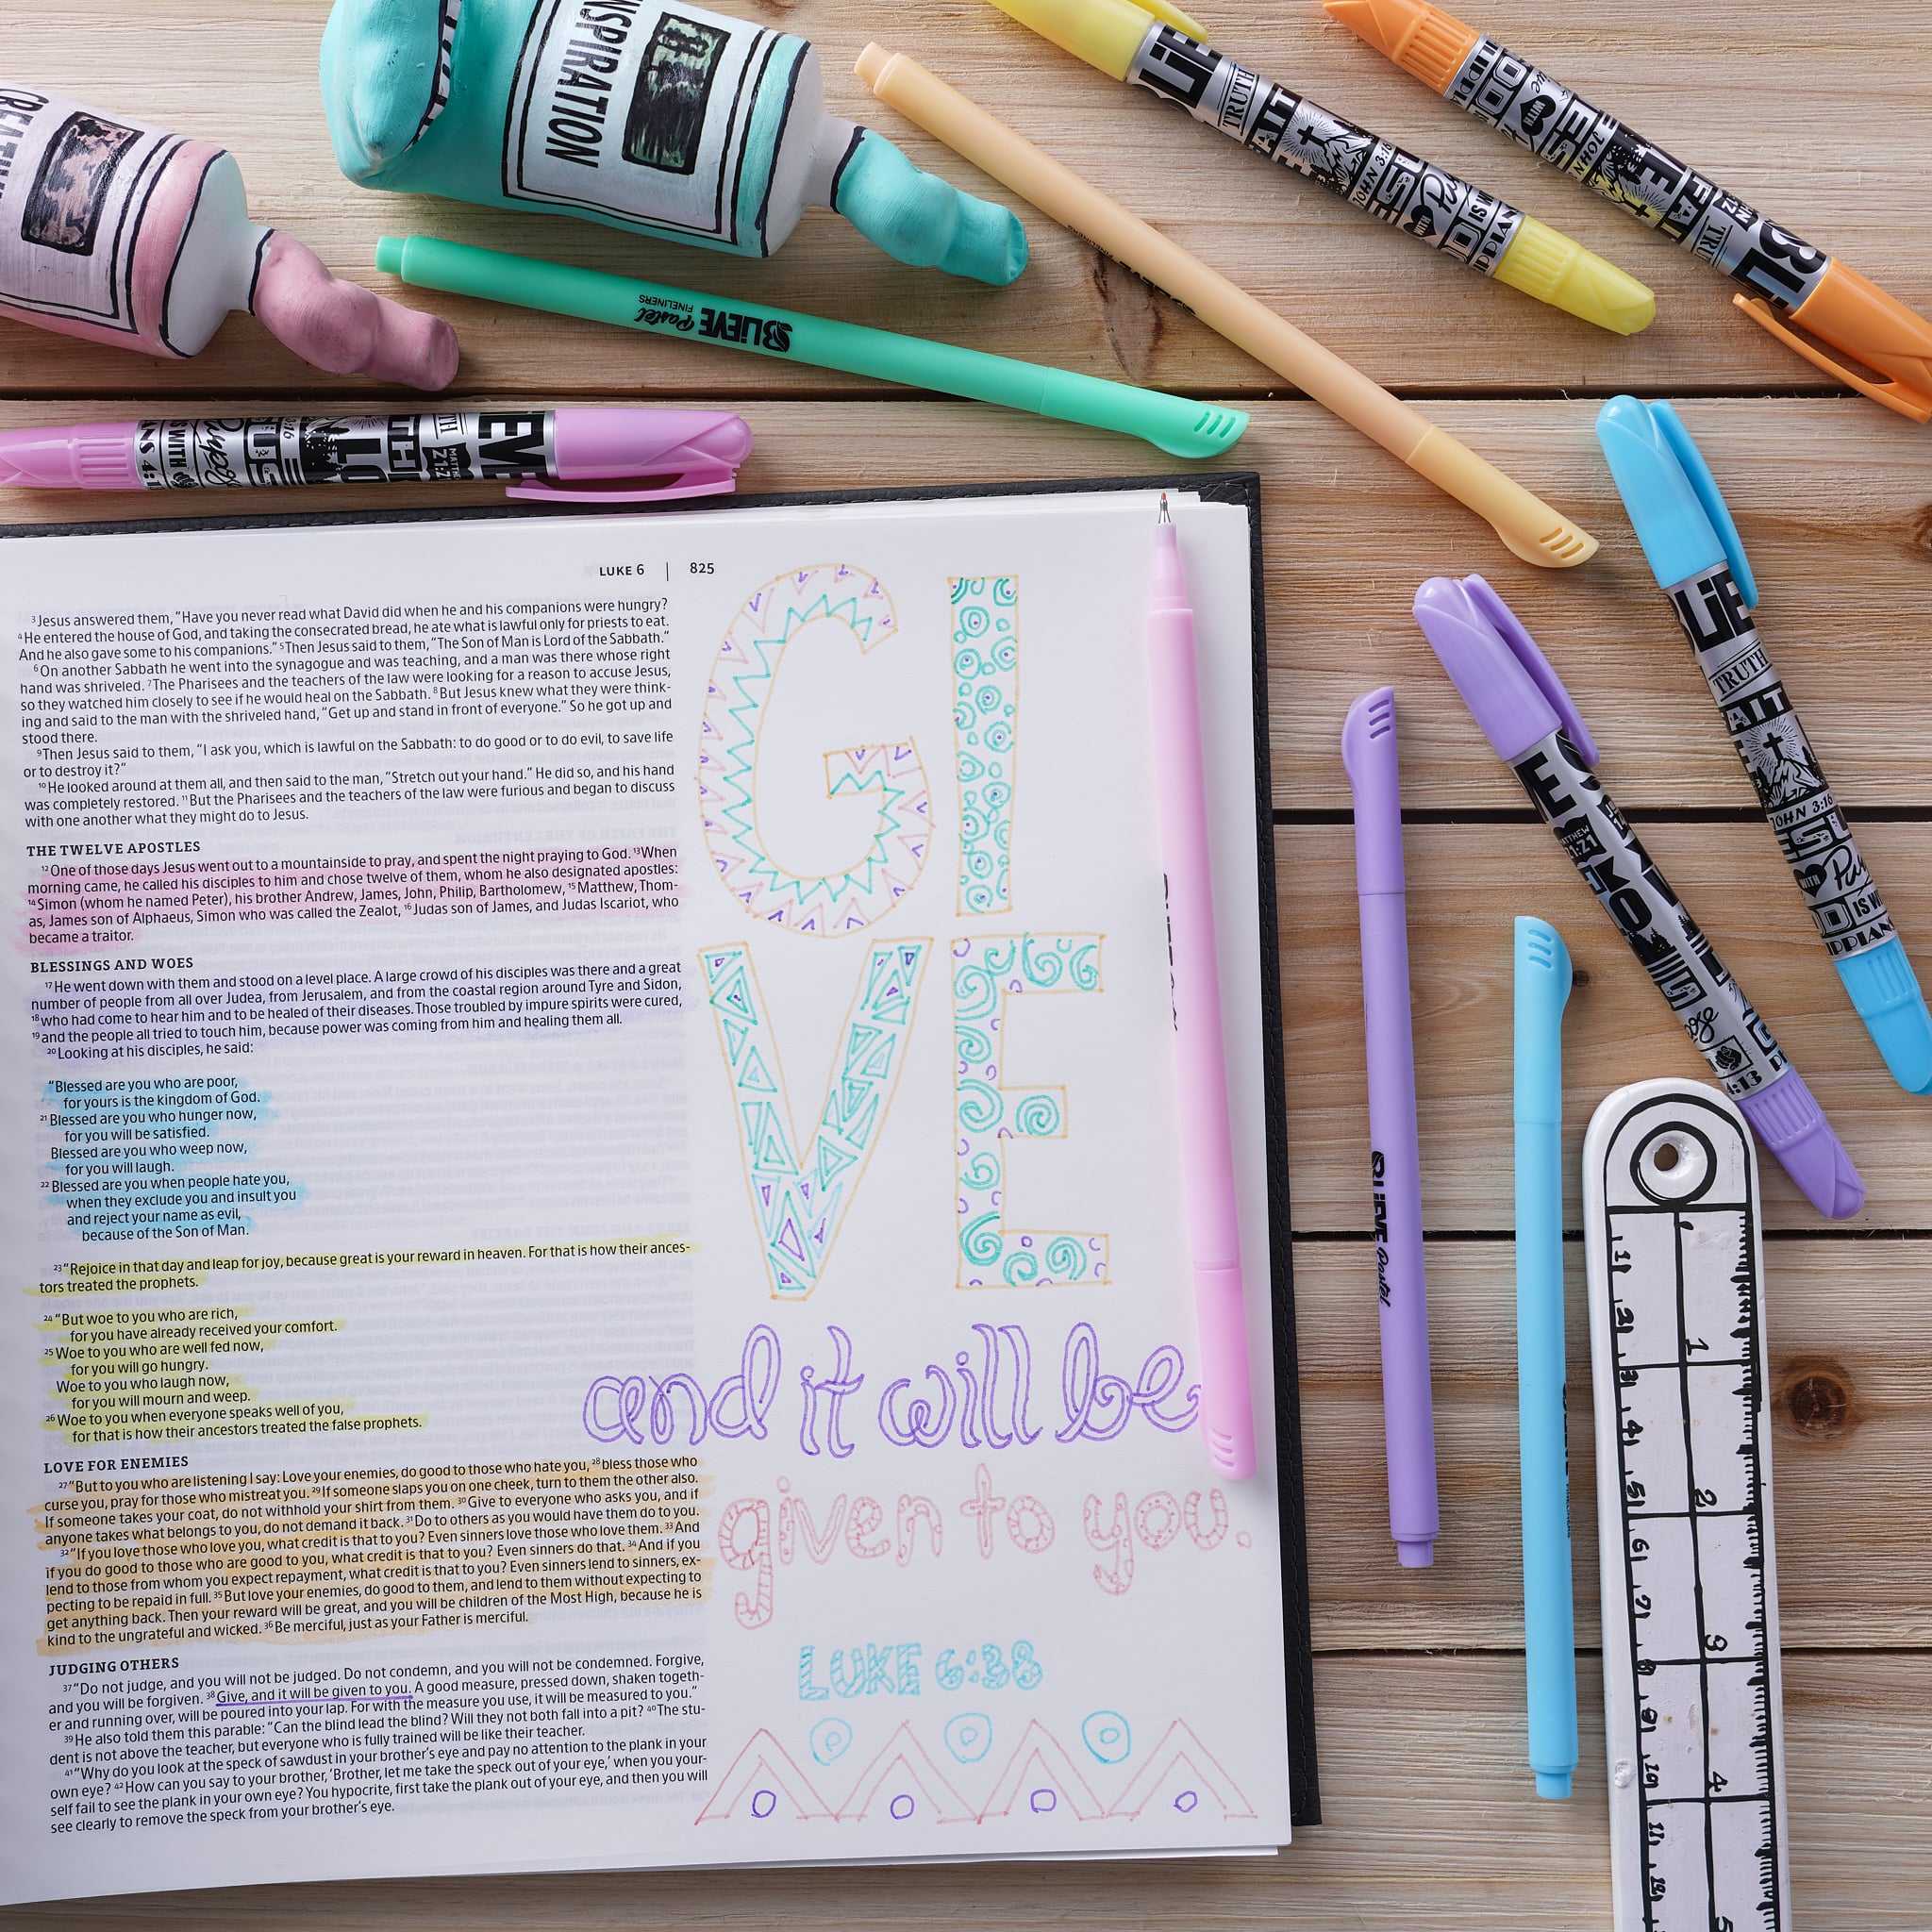 INSPIRATION
BLIEVE Pastel
FINELINERS
LUKE 6 | 825
3 Jesus answered them, “Have you never read what David did when he and his companions were hungry?
4 He entered the house of God, and taking the consecrated bread, he ate what is lawful only for priests to eat.
And he also gave some to his companions.” 5 Then Jesus said to them, “The Son of Man is Lord of the Sabbath.”
6 On another Sabbath he went into the synagogue and was teaching, and a man was there whose right
hand was shriveled. 7 The Pharisees and the teachers of the law were looking for a reason to accuse Jesus,
so they watched him closely to see if he would heal on the Sabbath. 8 But Jesus knew what they were think-
ing and said to the man with the shriveled hand, “Get up and stand in front of everyone.” So he got up and
stood there.
9 Then Jesus said to them, “I ask you, which is lawful on the Sabbath: to do good or to do evil, to save life
or to destroy it?”
10 He looked around at them all, and then said to the man, “Stretch out your hand.” He did so, and his hand
was completely restored. 11 But the Pharisees and the teachers of the law were furious and began to discuss
with one another what they might do to Jesus.
THE TWELVE APOSTLES
12 One of those days Jesus went out to a mountainside to pray, and spent the night praying to God. 13 When
morning came, he called his disciples to him and chose twelve of them, whom he also designated apostles:
14 Simon (whom he named Peter), his brother Andrew, James, John, Philip, Bartholomew, 15 Matthew, Thom-
as, James son of Alphaeus, Simon who was called the Zealot, 16 Judas son of James, and Judas Iscariot, who
became a traitor.
BLESSINGS AND WOES
17 He went down with them and stood on a level place. A large crowd of his disciples was there and a great
number of people from all over Judea, from Jerusalem, and from the coastal region around Tyre and Sidon,
18 who had come to hear him and to be healed of their diseases. Those troubled by impure spirits were cured,
19 and the people all tried to touch him, because power was coming from him and healing them all.
20 Looking at his disciples, he said:
“Blessed are you who are poor,
for yours is the kingdom of God.
21 Blessed are you who hunger now,
for you will be satisfied.
Blessed are you who weep now,
for you will laugh.
22 Blessed are you when people hate you,
when they exclude you and insult you
and reject your name as evil,
because of the Son of Man.
23 “Rejoice in that day and leap for joy, because great is your reward in heaven. For that is how their ances-
tors treated the prophets.
24 “But woe to you who are rich,
for you have already received your comfort.
25 Woe to you who are well fed now,
for you will go hungry.
Woe to you who laugh now,
for you will mourn and weep.
26 Woe to you when everyone speaks well of you,
for that is how their ancestors treated the false prophets.
LOVE FOR ENEMIES
27 “But to you who are listening I say: Love your enemies, do good to those who hate you, 28 bless those who
curse you, pray for those who mistreat you. 29 If someone slaps you on one cheek, turn to them the other also.
If someone takes your coat, do not withhold your shirt from them. 30 Give to everyone who asks you, and if
anyone takes what belongs to you, do not demand it back. 31 Do to others as you would have them do to you.
32 “If you love those who love you, what credit is that to you? Even sinners love those who love them. 33 And
if you do good to those who are good to you, what credit is that to you? Even sinners do that. 34 And if you
lend to those from whom you expect repayment, what credit is that to you? Even sinners lend to sinners, ex-
pecting to be repaid in full. 35 But love your enemies, do good to them, and lend to them without expecting to
get anything back. Then your reward will be great, and you will be children of the Most High, because he is
kind to the ungrateful and wicked. 36 Be merciful, just as your Father is merciful.
JUDGING OTHERS
37 “Do not judge, and you will not be judged. Do not condemn, and you will not be condemned. Forgive,
and you will be forgiven. 38 Give, and it will be given to you. A good measure, pressed down, shaken togeth-
er and running over, will be poured into your lap. For with the measure you use, it will be measured to you.”
39 He also told them this parable: “Can the blind lead the blind? Will they not both fall into a pit? 40 The stu-
dent is not above the teacher, but everyone who is fully trained will be like their teacher.
41 “Why do you look at the speck of sawdust in your brother’s eye and pay no attention to the plank in your
own eye? 42 How can you say to your brother, ‘Brother, let me take the speck out of your eye,’ when you your-
self fail to see the plank in your own eye? You hypocrite, first take the plank out of your eye, and then you will
see clearly to remove the speck from your brother’s eye.
GI
VE
and it will be
given to you.
LUKE 6:38
BLIEVE Pastel
TRUTH
JOHN 3:16
1 2 3 4 5 6 7 8 9 10 11 12
1 2 3 4 5